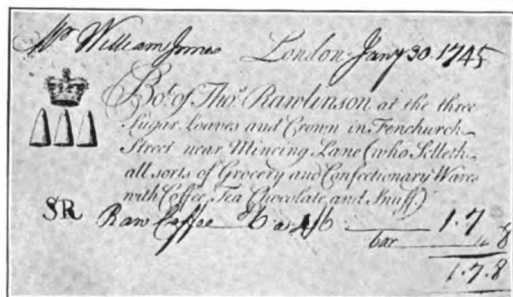 Mr William Jones London Jany 30. 1745
Bot. of Thos. Rawlinson at the three
Sugar Loaves and Crown in Fenchurch
Street near Mincing Lane (who Selleth
all sorts of Grocery and Confectionary Wares
with Coffee, Tea Chocolate and Snuff.)
SR
Raw Coffee 6 a 4/6 1.7
bar 8
1.7.8